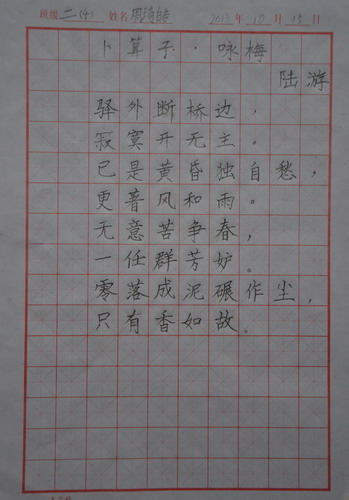 班级 二(4) 姓名 2013年10月15日
卜算子·咏梅
陆游
驿外断桥边,
寂寞开无主。
已是黄昏独自愁,
更著风和雨。
无意苦争春,
一任群芳妒。
零落成泥碾作尘,
只有香如故。